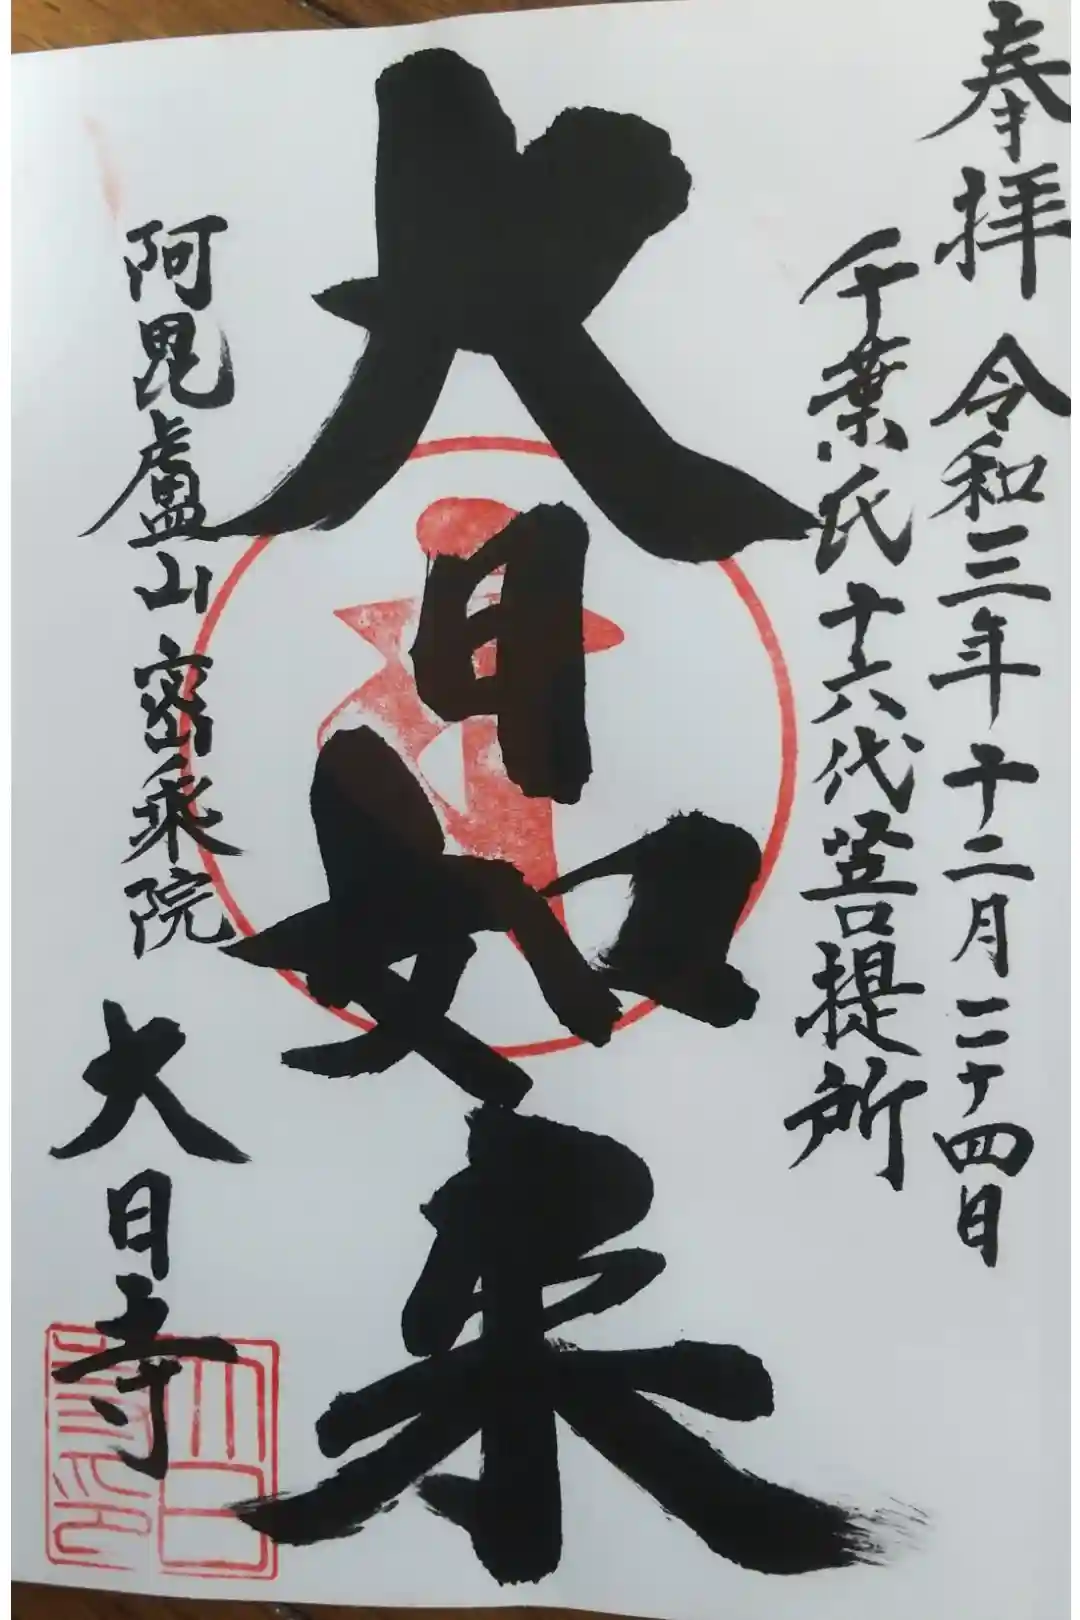 奉拝 令和三年十二月二十四日
千葉氏十六代菩提所
大日如来
阿毘盧山密乗院
大日寺
大日寺印